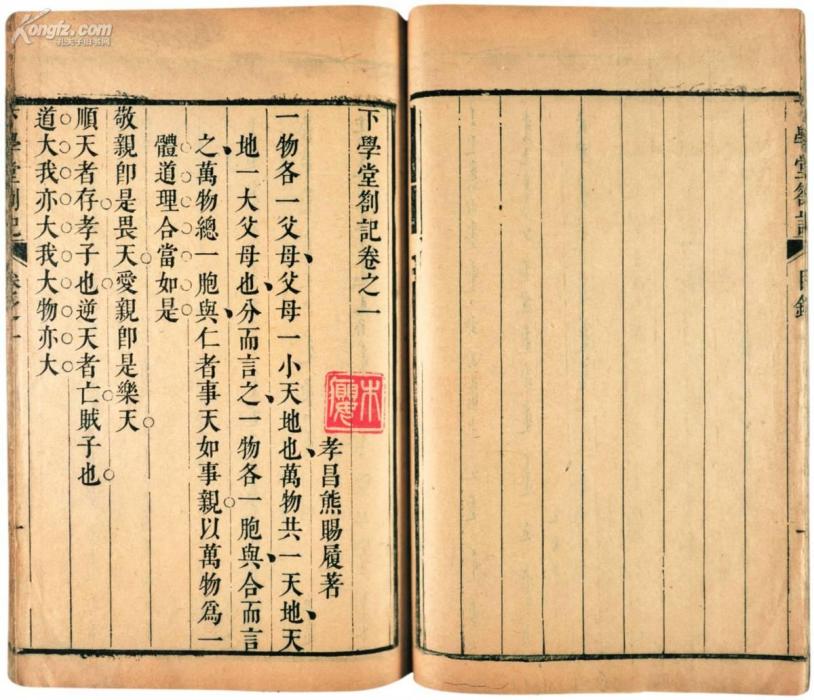 Kongfz.com
孔夫子旧书网
學堂劄記
目錄
下學堂劄記卷之一
孝昌熊賜履著
一物各一父母父母一小天地也萬物共一天地天
地一大父母也分而言之一物各一胞與合而言
之萬物總一胞與仁者事天如事親以萬物爲一
體道理合當如是
敬親卽是畏天愛親卽是樂天
順天者存孝子也逆天者亡賊子也
道大我亦大我大物亦大
下學堂劄記
卷之一